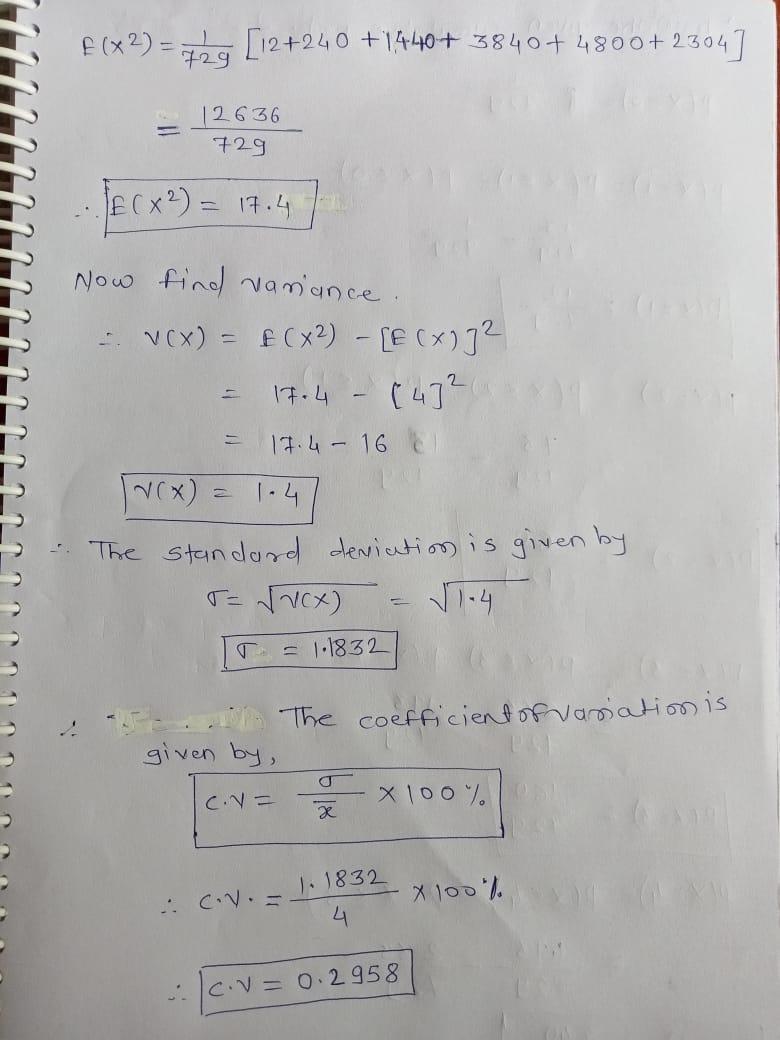 E(x2) = 1/729 [12+240 +1440+ 3840+ 4800+ 2304]
= 12636/729
∴ E(x2) = 17.4
Now find variance.
∴ V(X) = E(x2) - [E(x)]2
= 17.4 - [4]2
= 17.4 - 16
V(X) = 1.4
∴ The standard deviation is given by
σ = √V(X) = √1.4
σ = 1.1832
∴ The coefficient of variation is
given by,
C.V = σ/x̄ × 100 %
∴ C.V. = 1.1832/4 × 100 %
∴ C.V = 0.2958